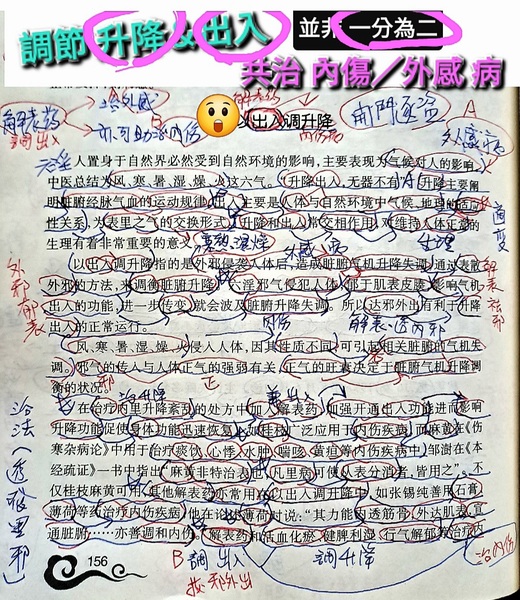 調節 升降 & 出入 並非 一分為二
共治 內傷／外感 病
解表药
治外感
調出入
亦可助治内伤
解表药
内伤病
開門逐盜
A
外感病
以出入调升降
六淫
人置身于自然界必然受到自然环境的影响,主要表现为气候对人的影响,
中医总结为风、寒、暑、湿、燥、火这六气。“升降出入,无器不有”,升降主要阐
明脏腑经脉气血的运动规律,出入主要是人体与自然环境中气候、地理的适应
性关系,为表里之气的交换形式,升降和出入常交相作用,对维持人体正常的
生理有着非常重要的意义。
生理
以出入调升降指的是外邪侵袭人体后,造成脏腑气机升降失调,通过表散
外邪的方法,来调衡脏腑升降。六淫邪气侵犯人体,郁于肌表皮腠,影响气机
出入的功能,进一步传变,就会波及脏腑升降失调。所以达邪外出有利于升降
出入的正常运行。
外邪郁表
解表祛邪
内伤
解表、透内邪
风、寒、暑、湿、燥、火侵入人体,因其性质不同,可引起相关脏腑的气机失
调。邪气的传入与人体正气的强弱有关,正气的旺衰决定于脏腑气机升降调
衡的状况。
邪
正
治升降
兼出入
在治疗内里升降紊乱的处方中加入解表药,加强开通出入功能进而影响
升降功能促使身体功能迅速恢复,如桂枝广泛应用于内伤疾病,而麻黄在《伤
寒杂病论》中用于治疗痰饮、心悸、水肿、喘咳、黄疸等内伤疾病中,邹澍在《本
经疏证》一书中指出“麻黄非特治表也,凡里病可使从表分消者,皆用之”。不
仅桂枝麻黄可用,其他解表药亦常用的以出入调升降中,如张锡纯善用石膏、
薄荷等药治疗内伤疾病,他在论述薄荷时说:“其力能内透筋骨,外达肌表,宣
通脏腑……亦善调和内伤。”解表药和活血化瘀、健脾利湿、行气解郁救治疗内
治法(透發里邪)
156
B 調出入
拔邪外出
調升降
治内伤